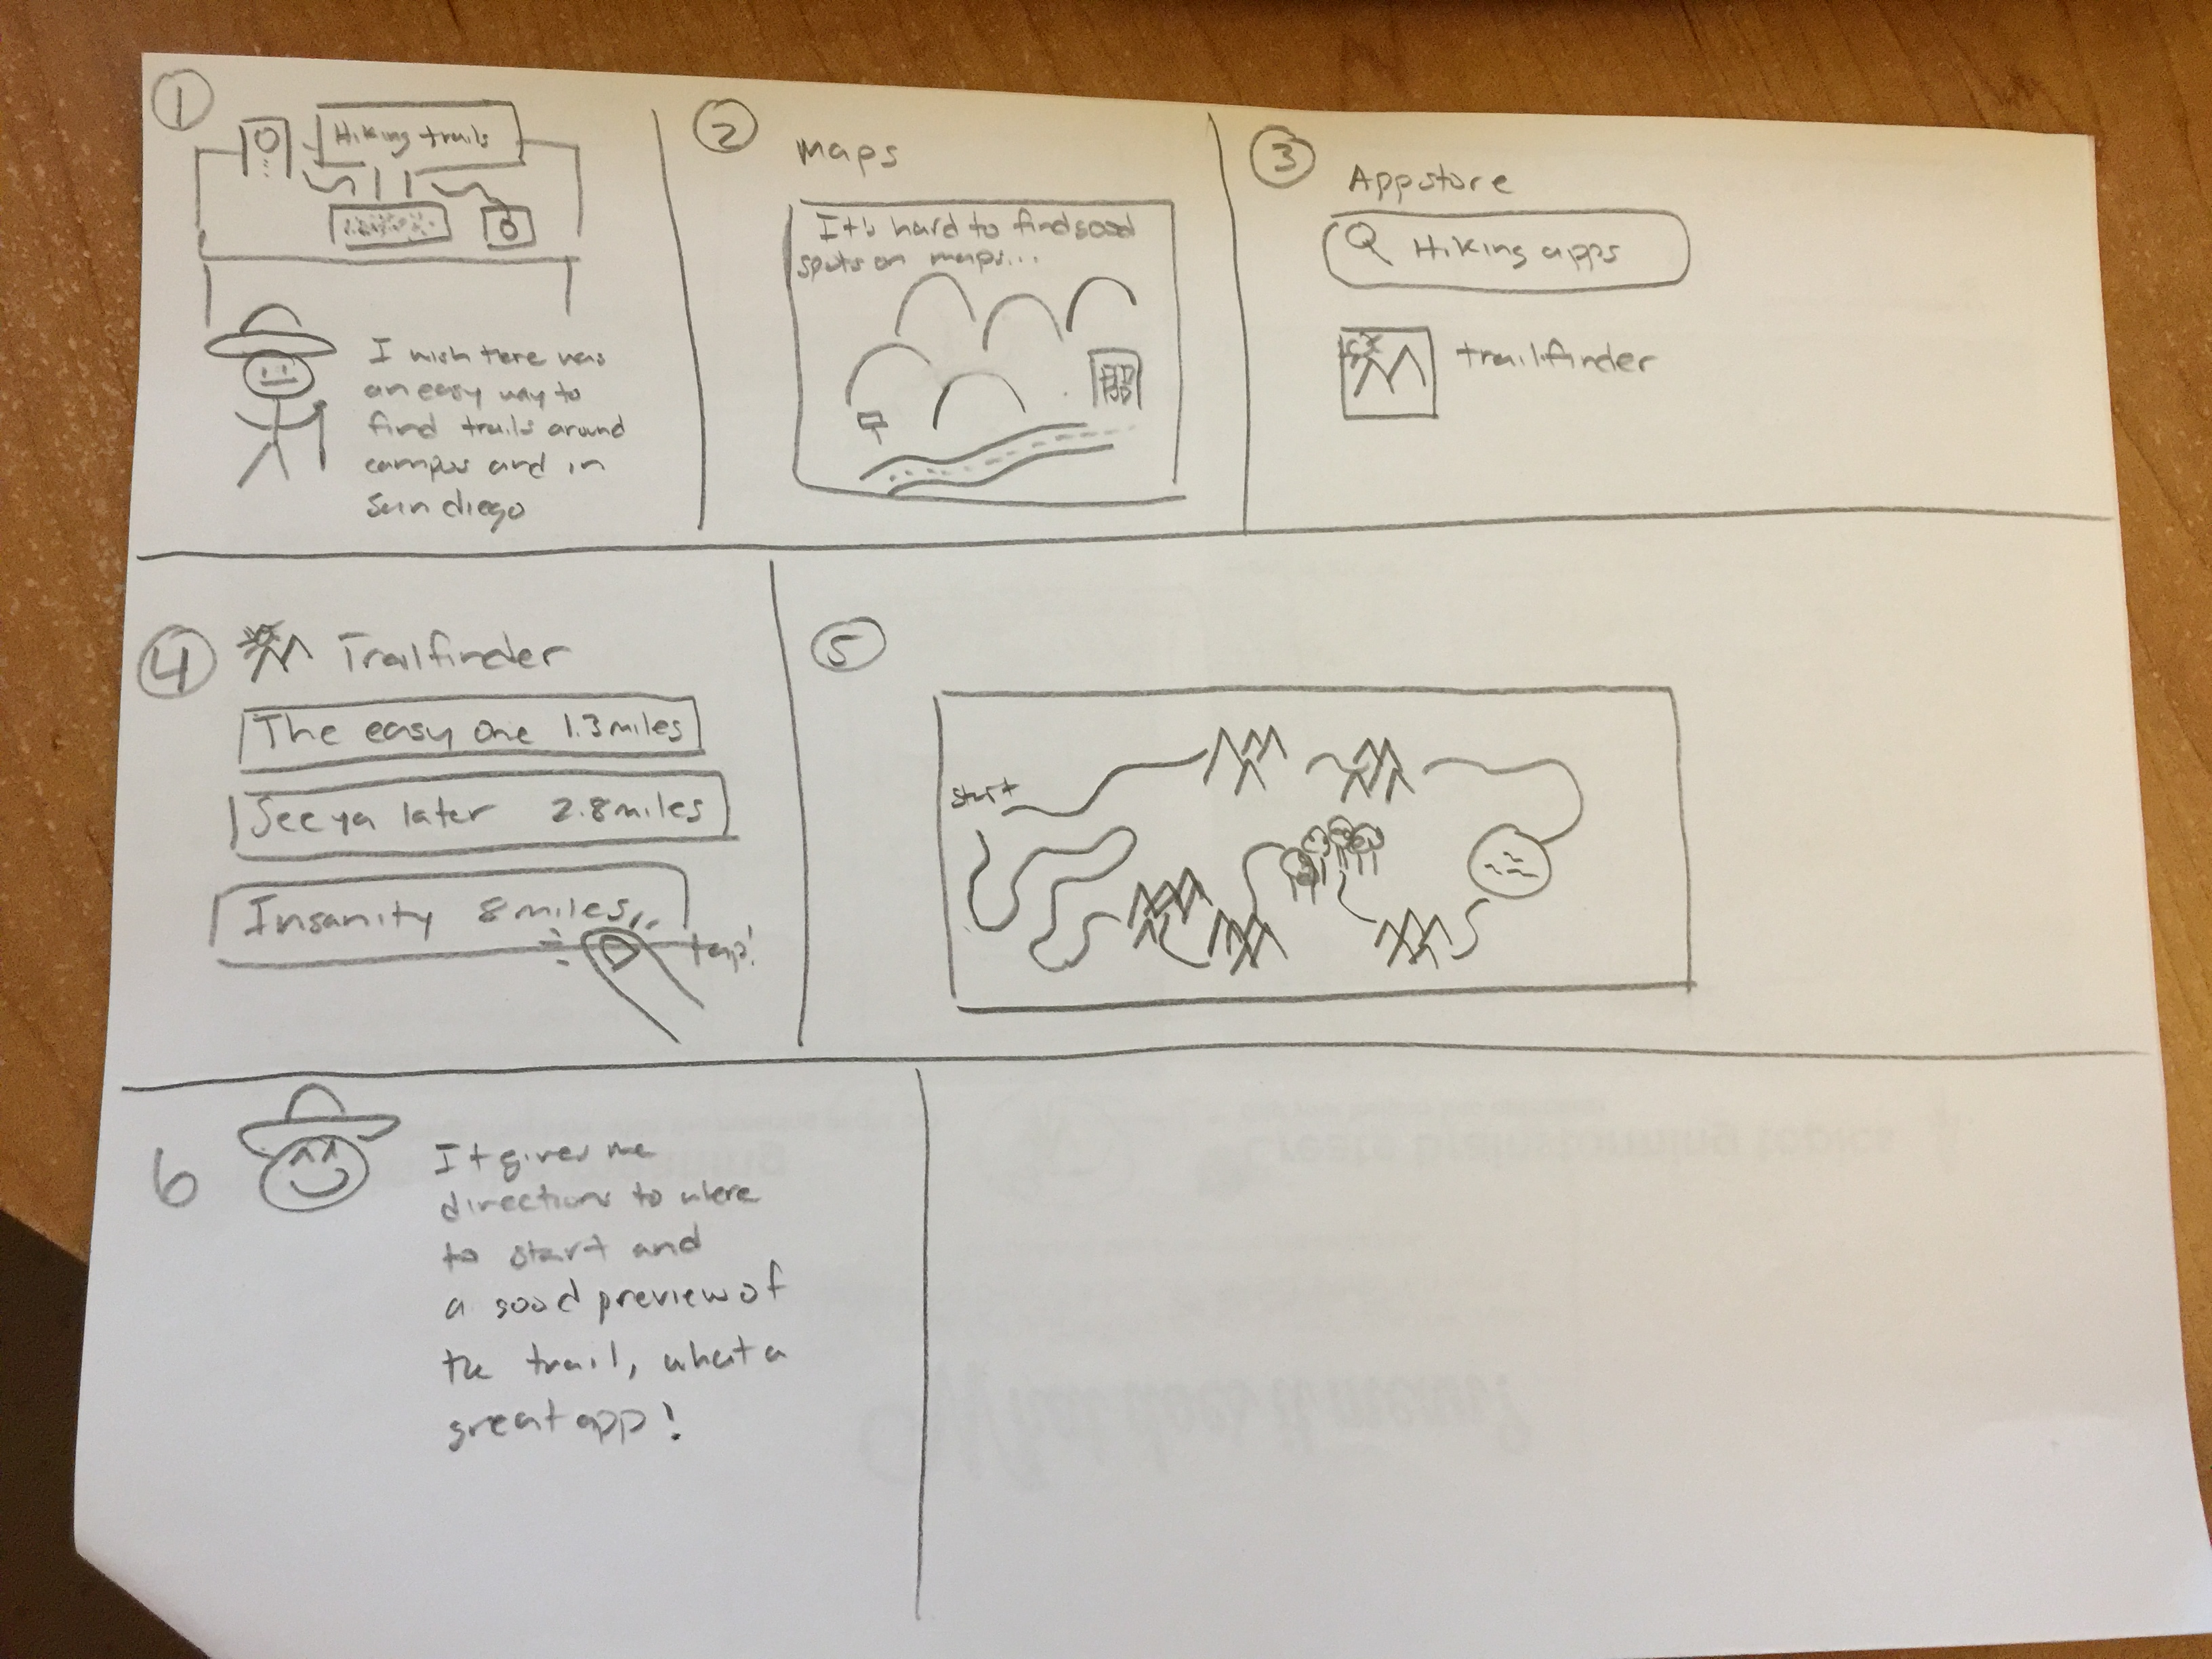 1
Hiking trails
I wish tere was
an easy way to
find trails around
campus and in
San diego
2
maps
It's hard to find good
spots on maps...
3
Appstore
Hiking apps
trailfinder
4
Trailfinder
The easy one 1.3 miles
See ya later 2.8 miles
Insanity 8 miles
tap!
5
start
6
It gives me
directions to where
to start and
a good preview of
the trail, what a
great app!
Create brainstorming topics
What does it mean?